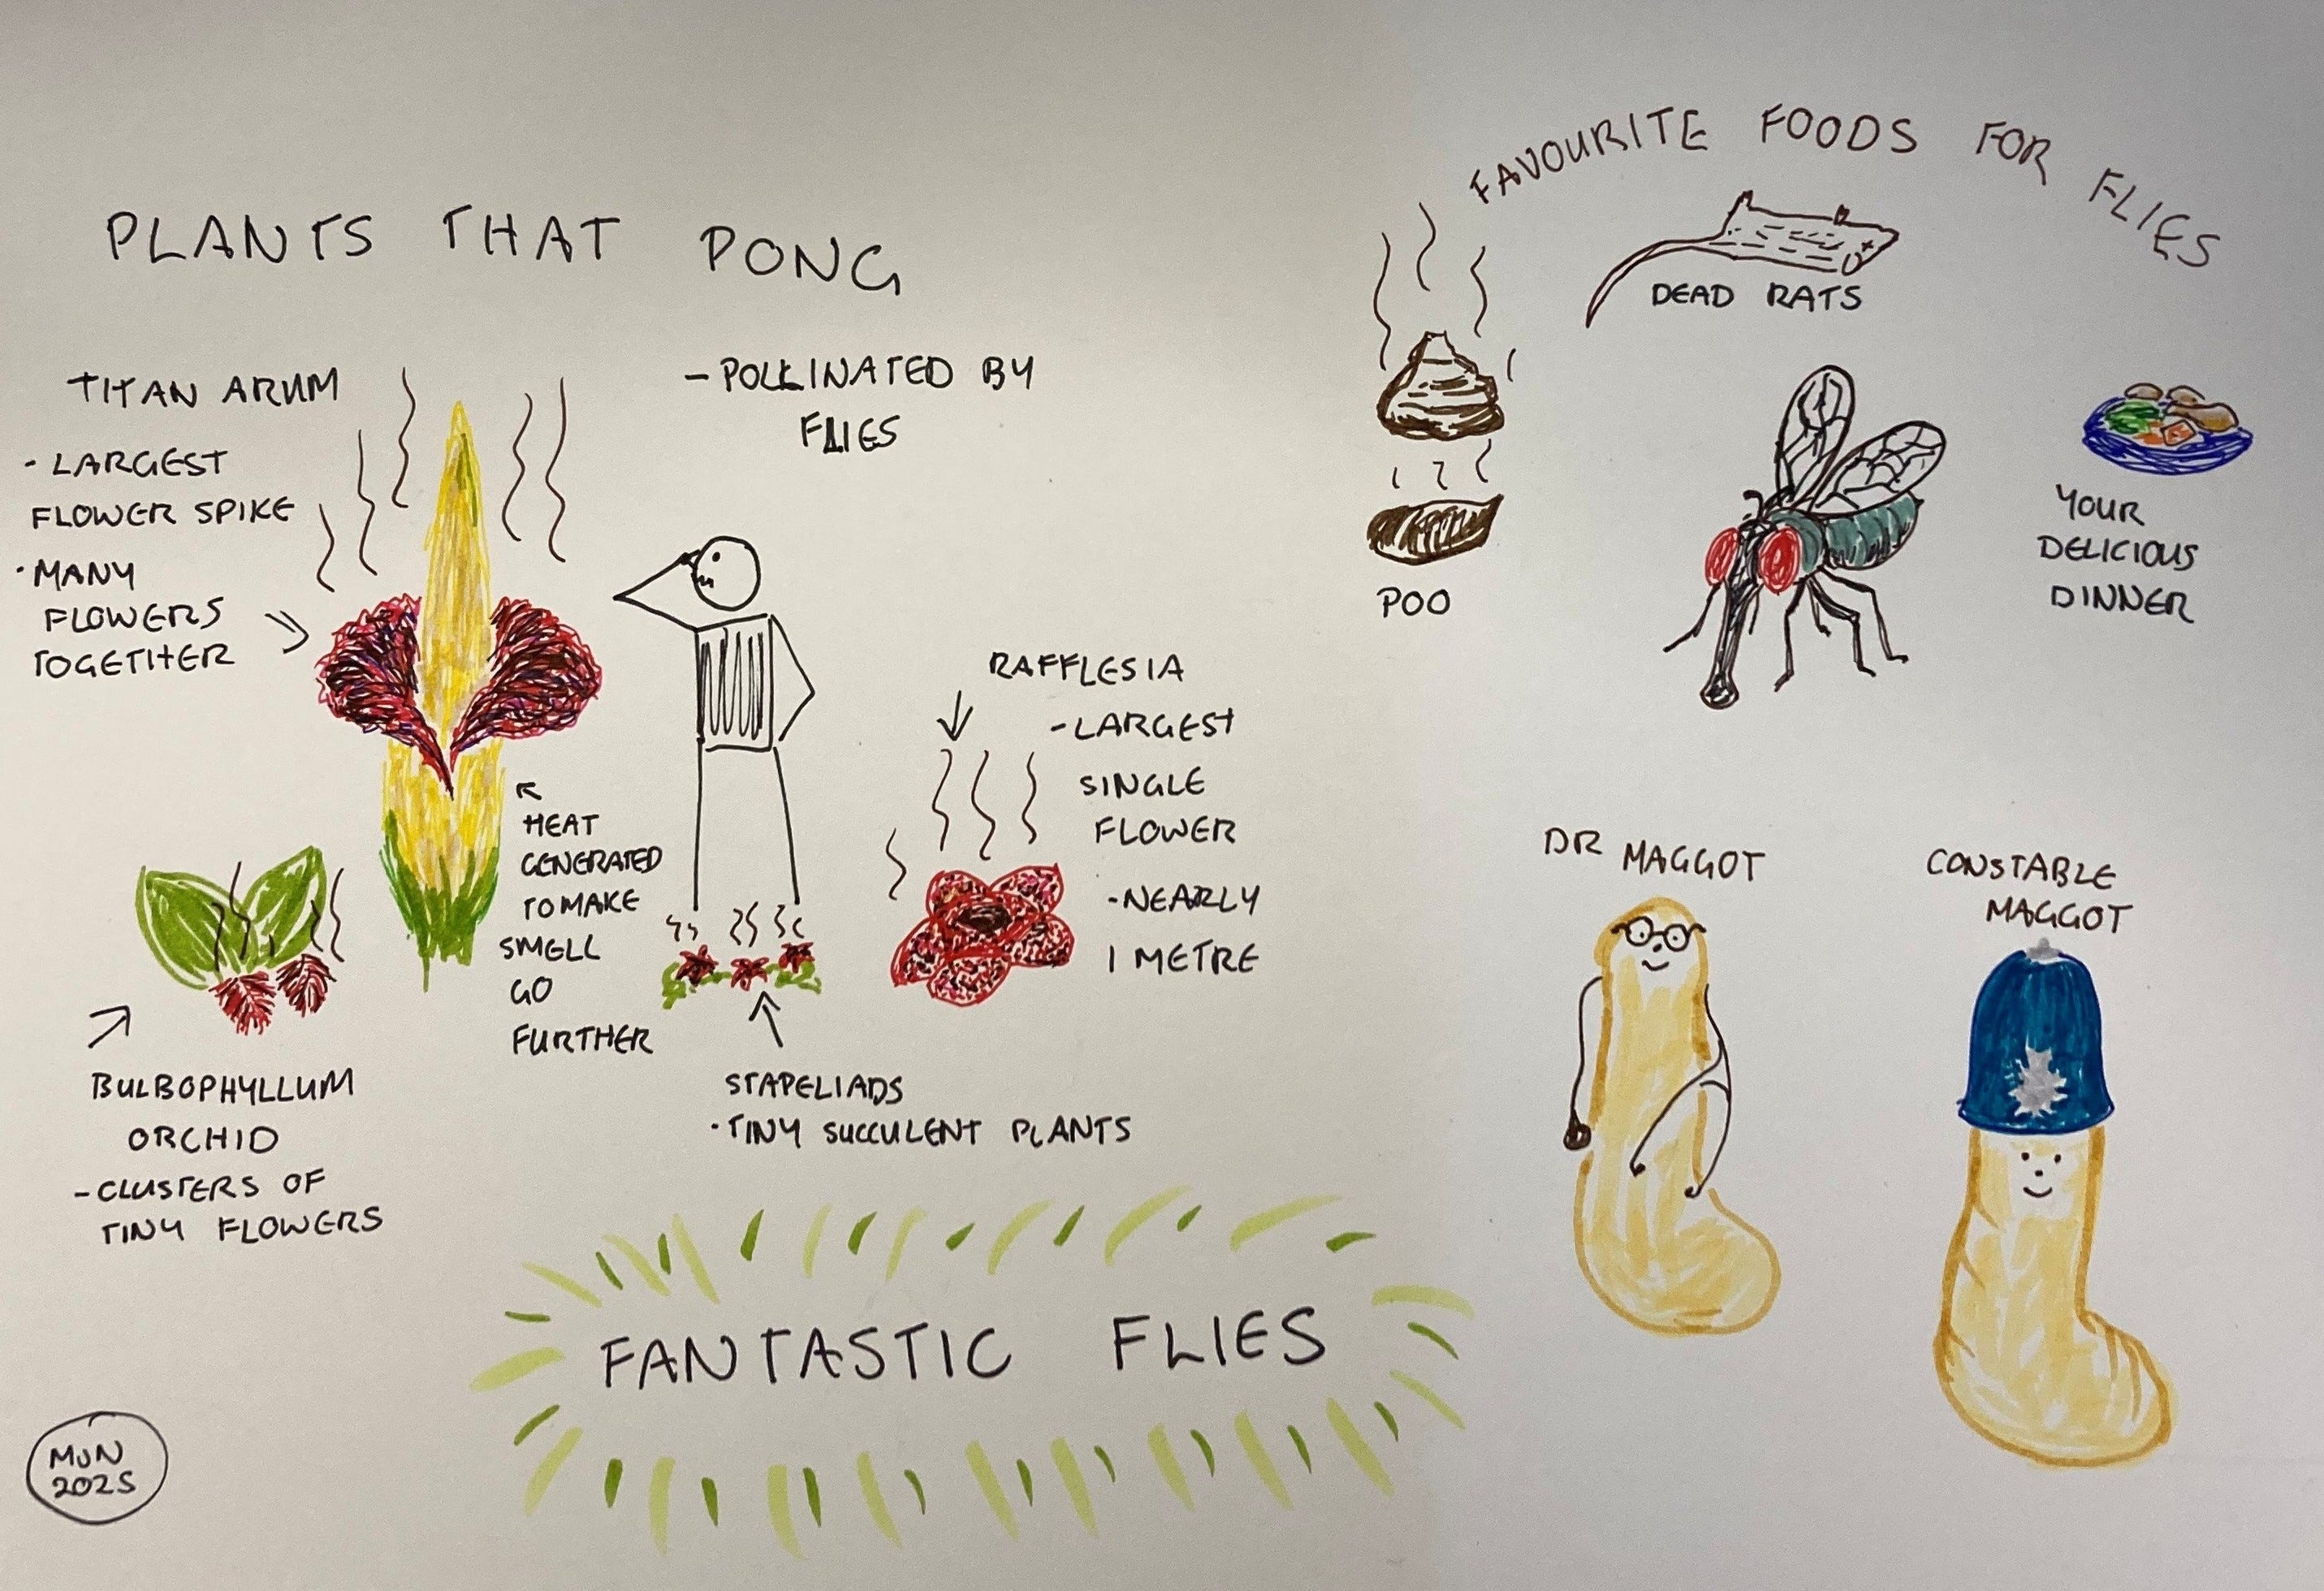 PLANTS THAT PONG
- POLLINATED BY
FLIES
TITAN ARUM
- LARGEST
FLOWER SPIKE
· MANY
FLOWERS
TOGETHER
HEAT
GENERATED
TO MAKE
SMELL
GO
FURTHER
RAFFLESIA
- LARGEST
SINGLE
FLOWER
- NEARLY
1 METRE
BULBOPHYLLUM
ORCHID
- CLUSTERS OF
TINY FLOWERS
STAPELIADS
· TINY SUCCULENT PLANTS
FAVOURITE FOODS FOR FLIES
DEAD RATS
POO
YOUR
DELICIOUS
DINNER
DR MAGGOT
CONSTABLE
MAGGOT
FANTASTIC FLIES
MJN
2025